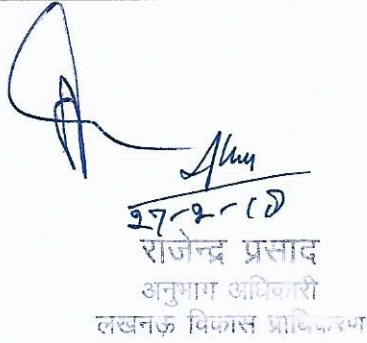 27-2-18
राजेन्द्र प्रसाद
अनुभाग अधिकारी
लखनऊ विकास प्राधिकरण